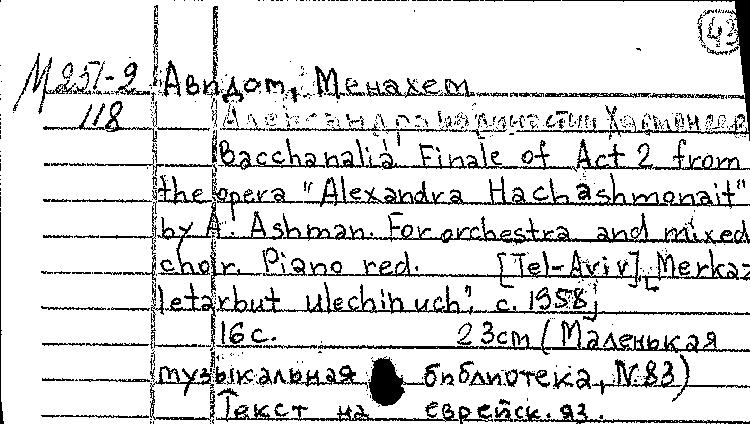 43
М 251-2 Авидот, Менахем
118 Александра из династии Хасмонеев
Bacchanalia. Finale of Act 2 from
the opera "Alexandra Hachashmonait"
by A. Ashman. For orchestra and mixed
choir. Piano red. [Tel-Aviv], Merkaz
letarbut ulechinuch", c. 1958]
16 c. 23cm (Маленькая
музыкальная библиотека, N. 83)
Текст на еврейск. яз.